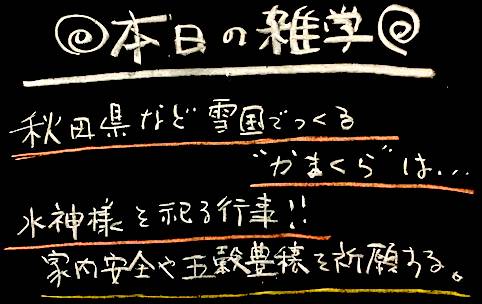 本日の雑学
秋田県など雪国でつくる
"かまくら"は...
水神様を祀る行事!!
家内安全や五穀豊穣を祈願する。